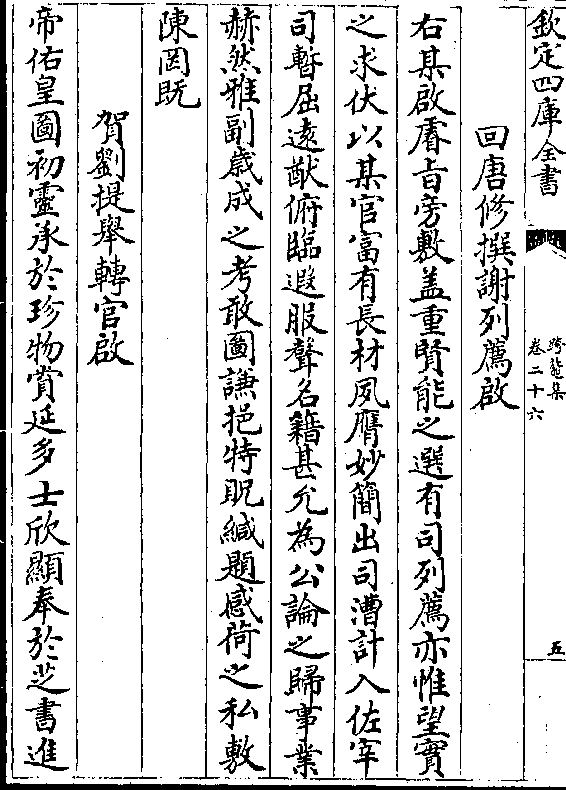 欽定四庫全書
跨鼇集
卷二十六
五
回唐修撰謝列薦啟
右某啟膺㫖旁敷盖重賢能之選有司列薦亦惟望實
之求伏以某官富有長材夙膺妙簡出司漕計入佐宰
司暫屈逺猷俯臨遐服聲名籍甚允為公論之歸事業
赫然雅副歲成之考敢圖謙挹特貺緘題感荷之私敷
陳罔既
賀劉提舉轉官啟
帝佑皇圖初靈承於珍物賞延多士欣顯奉於芝書進